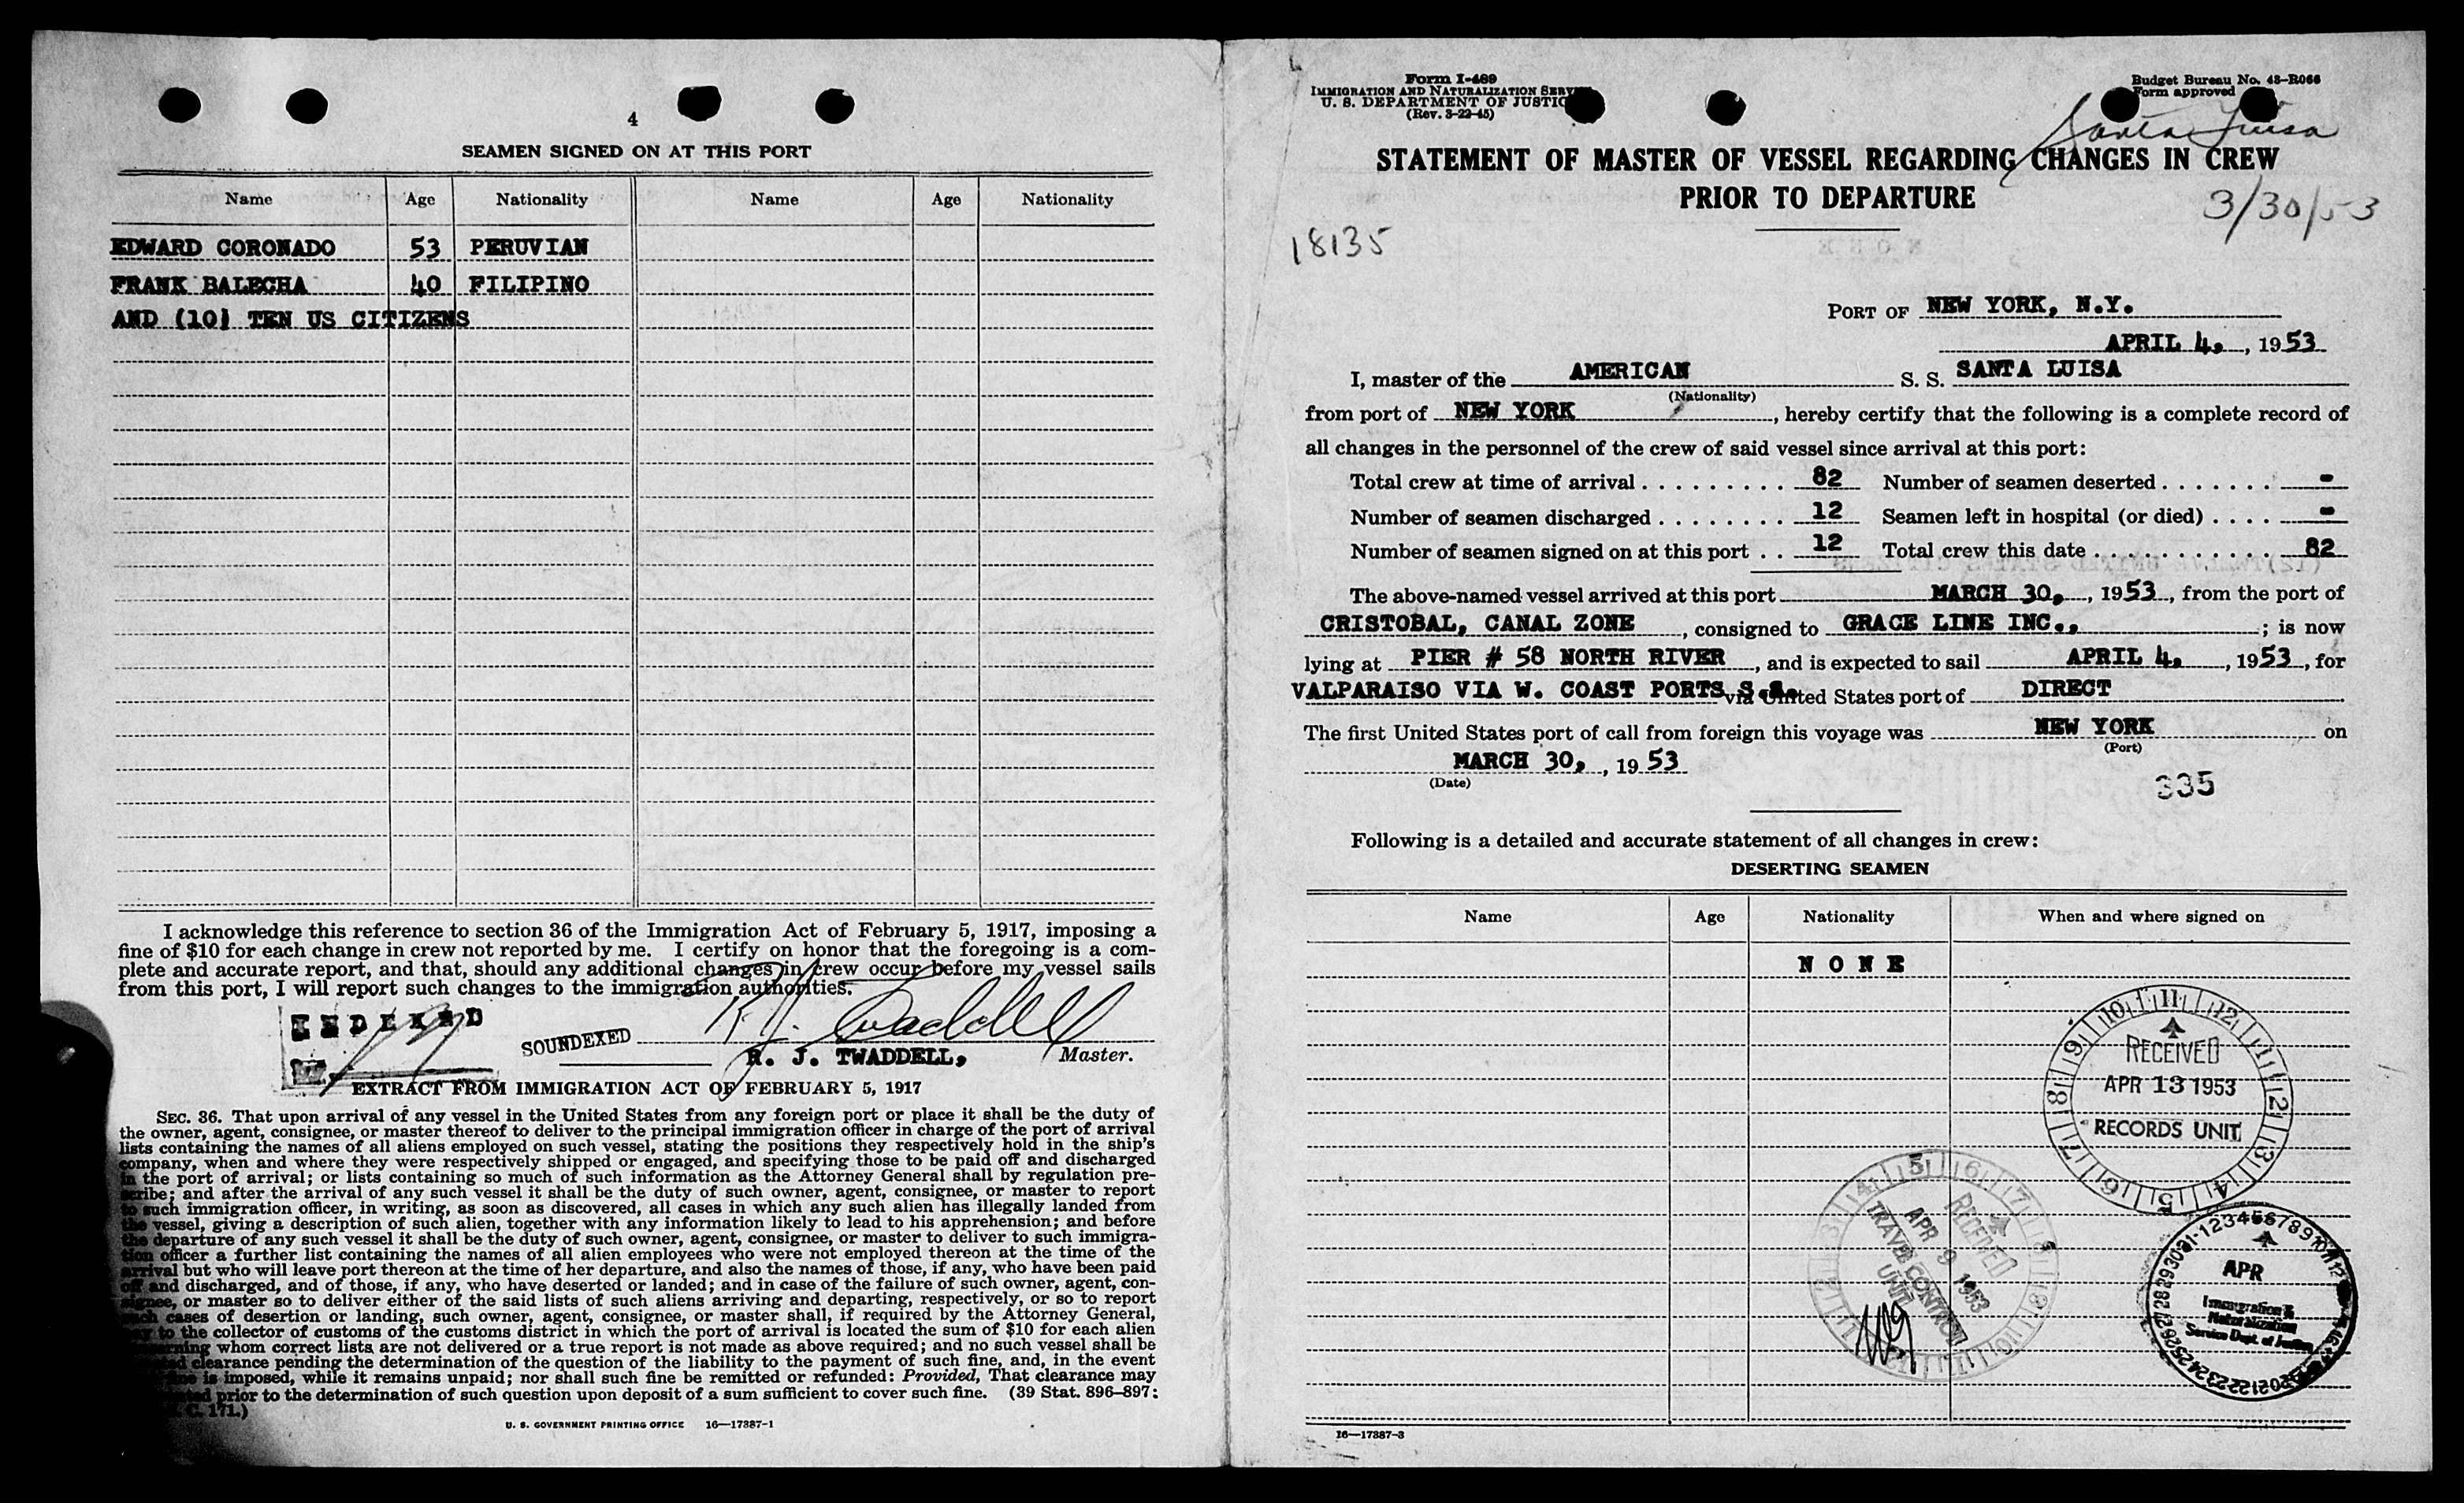 4
SEAMEN SIGNED ON AT THIS PORT
Name Age Nationality Name Age Nationality
EDWARD CORONADO 53 PERUVIAN
FRANK BALECHA 40 FILIPINO
AND (10) TEN US CITIZENS
I acknowledge this reference to section 36 of the Immigration Act of February 5, 1917, imposing a
fine of $10 for each change in crew not reported by me. I certify on honor that the foregoing is a com-
plete and accurate report, and that, should any additional changes in crew occur before my vessel sails
from this port, I will report such changes to the immigration authorities.
INDEXED
SOUNDEXED
R. J. Twaddell
R. J. TWADDELL, Master.
EXTRACT FROM IMMIGRATION ACT OF FEBRUARY 5, 1917
SEC. 36. That upon arrival of any vessel in the United States from any foreign port or place it shall be the duty of
the owner, agent, consignee, or master thereof to deliver to the principal immigration officer in charge of the port of arrival
lists containing the names of all aliens employed on such vessel, stating the positions they respectively hold in the ship's
company, when and where they were respectively shipped or engaged, and specifying those to be paid off and discharged
in the port of arrival; or lists containing so much of such information as the Attorney General shall by regulation pre-
scribe; and after the arrival of any such vessel it shall be the duty of such owner, agent, consignee, or master to report
to such immigration officer, in writing, as soon as discovered, all cases in which any such alien has illegally landed from
the vessel, giving a description of such alien, together with any information likely to lead to his apprehension; and before
the departure of any such vessel it shall be the duty of such owner, agent, consignee, or master to deliver to such immigra-
tion officer a further list containing the names of all alien employees who were not employed thereon at the time of the
arrival but who will leave port thereon at the time of her departure, and also the names of those, if any, who have been paid
off and discharged, and of those, if any, who have deserted or landed; and in case of the failure of such owner, agent, con-
signee, or master so to deliver either of the said lists of such aliens arriving and departing, respectively, or so to report
such cases of desertion or landing, such owner, agent, consignee, or master shall, if required by the Attorney General,
pay to the collector of customs of the customs district in which the port of arrival is located the sum of $10 for each alien
whom correct lists are not delivered or a true report is not made as above required; and no such vessel shall be
clearance pending the determination of the question of the liability to the payment of such fine, and, in the event
fine is imposed, while it remains unpaid; nor shall such fine be remitted or refunded: Provided, That clearance may
prior to the determination of such question upon deposit of a sum sufficient to cover such fine. (39 Stat. 896–897;
C. 171.)
U. S. GOVERNMENT PRINTING OFFICE 16—17387-1
Form I-489
IMMIGRATION AND NATURALIZATION
U. S. DEPARTMENT OF JUSTIC
(Rev. 3-22-45)
Budget Bureau No. 43-R066
Form approved
Santa Luisa
STATEMENT OF MASTER OF VESSEL REGARDING CHANGES IN CREW
PRIOR TO DEPARTURE
3/30/53
18135
PORT OF NEW YORK, N.Y.
APRIL 4, 1953
I, master of the AMERICAN S. S. SANTA LUISA
(Nationality)
from port of NEW YORK, hereby certify that the following is a complete record of
all changes in the personnel of the crew of said vessel since arrival at this port:
Total crew at time of arrival . . . . . . . . . 82 Number of seamen deserted . . . . . . . -
Number of seamen discharged . . . . . . . . 12 Seamen left in hospital (or died) . . . . -
Number of seamen signed on at this port . . 12 Total crew this date . . . . . . . . . . . 82
The above-named vessel arrived at this port MARCH 30, 1953, from the port of
CRISTOBAL, CANAL ZONE, consigned to GRACE LINE INC., ; is now
lying at PIER # 58 NORTH RIVER, and is expected to sail APRIL 4, 1953, for
VALPARAISO VIA W. COAST PORTS S.A. via United States port of DIRECT
The first United States port of call from foreign this voyage was NEW YORK on
(Port)
MARCH 30, 1953
(Date)
335
Following is a detailed and accurate statement of all changes in crew:
DESERTING SEAMEN
Name Age Nationality When and where signed on
NONE
RECEIVED
APR 13 1953
RECORDS UNIT
RECEIVED
APR 9 1953
TRAVEL CONTROL
UNIT
APR
Immigration &
Naturalization
Service Dept. of Justice
16—17387-3